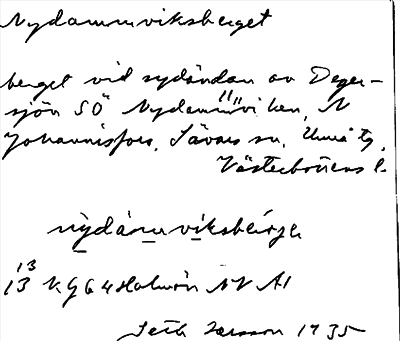 Nydammviksberget
berget vid sydändan av Deger-
sjön SÖ Nydammviken, N
Johannisfors, Sävars sn, Umeå tg,
Västerbottens l.
13
13 K G 64 Holmön NV A1
Seth Larsson 1935